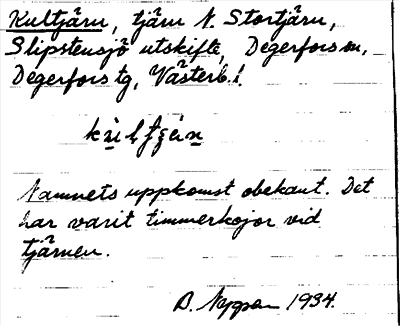 Kultjärn, tjärn N. Stortjärn,
Slipstensjö utskifte, Degerfors sn,
Degerfors tg, Västerb. l.
Namnets uppkomst obekant. Det
har varit timmerkojor vid
tjärnen.
1934.